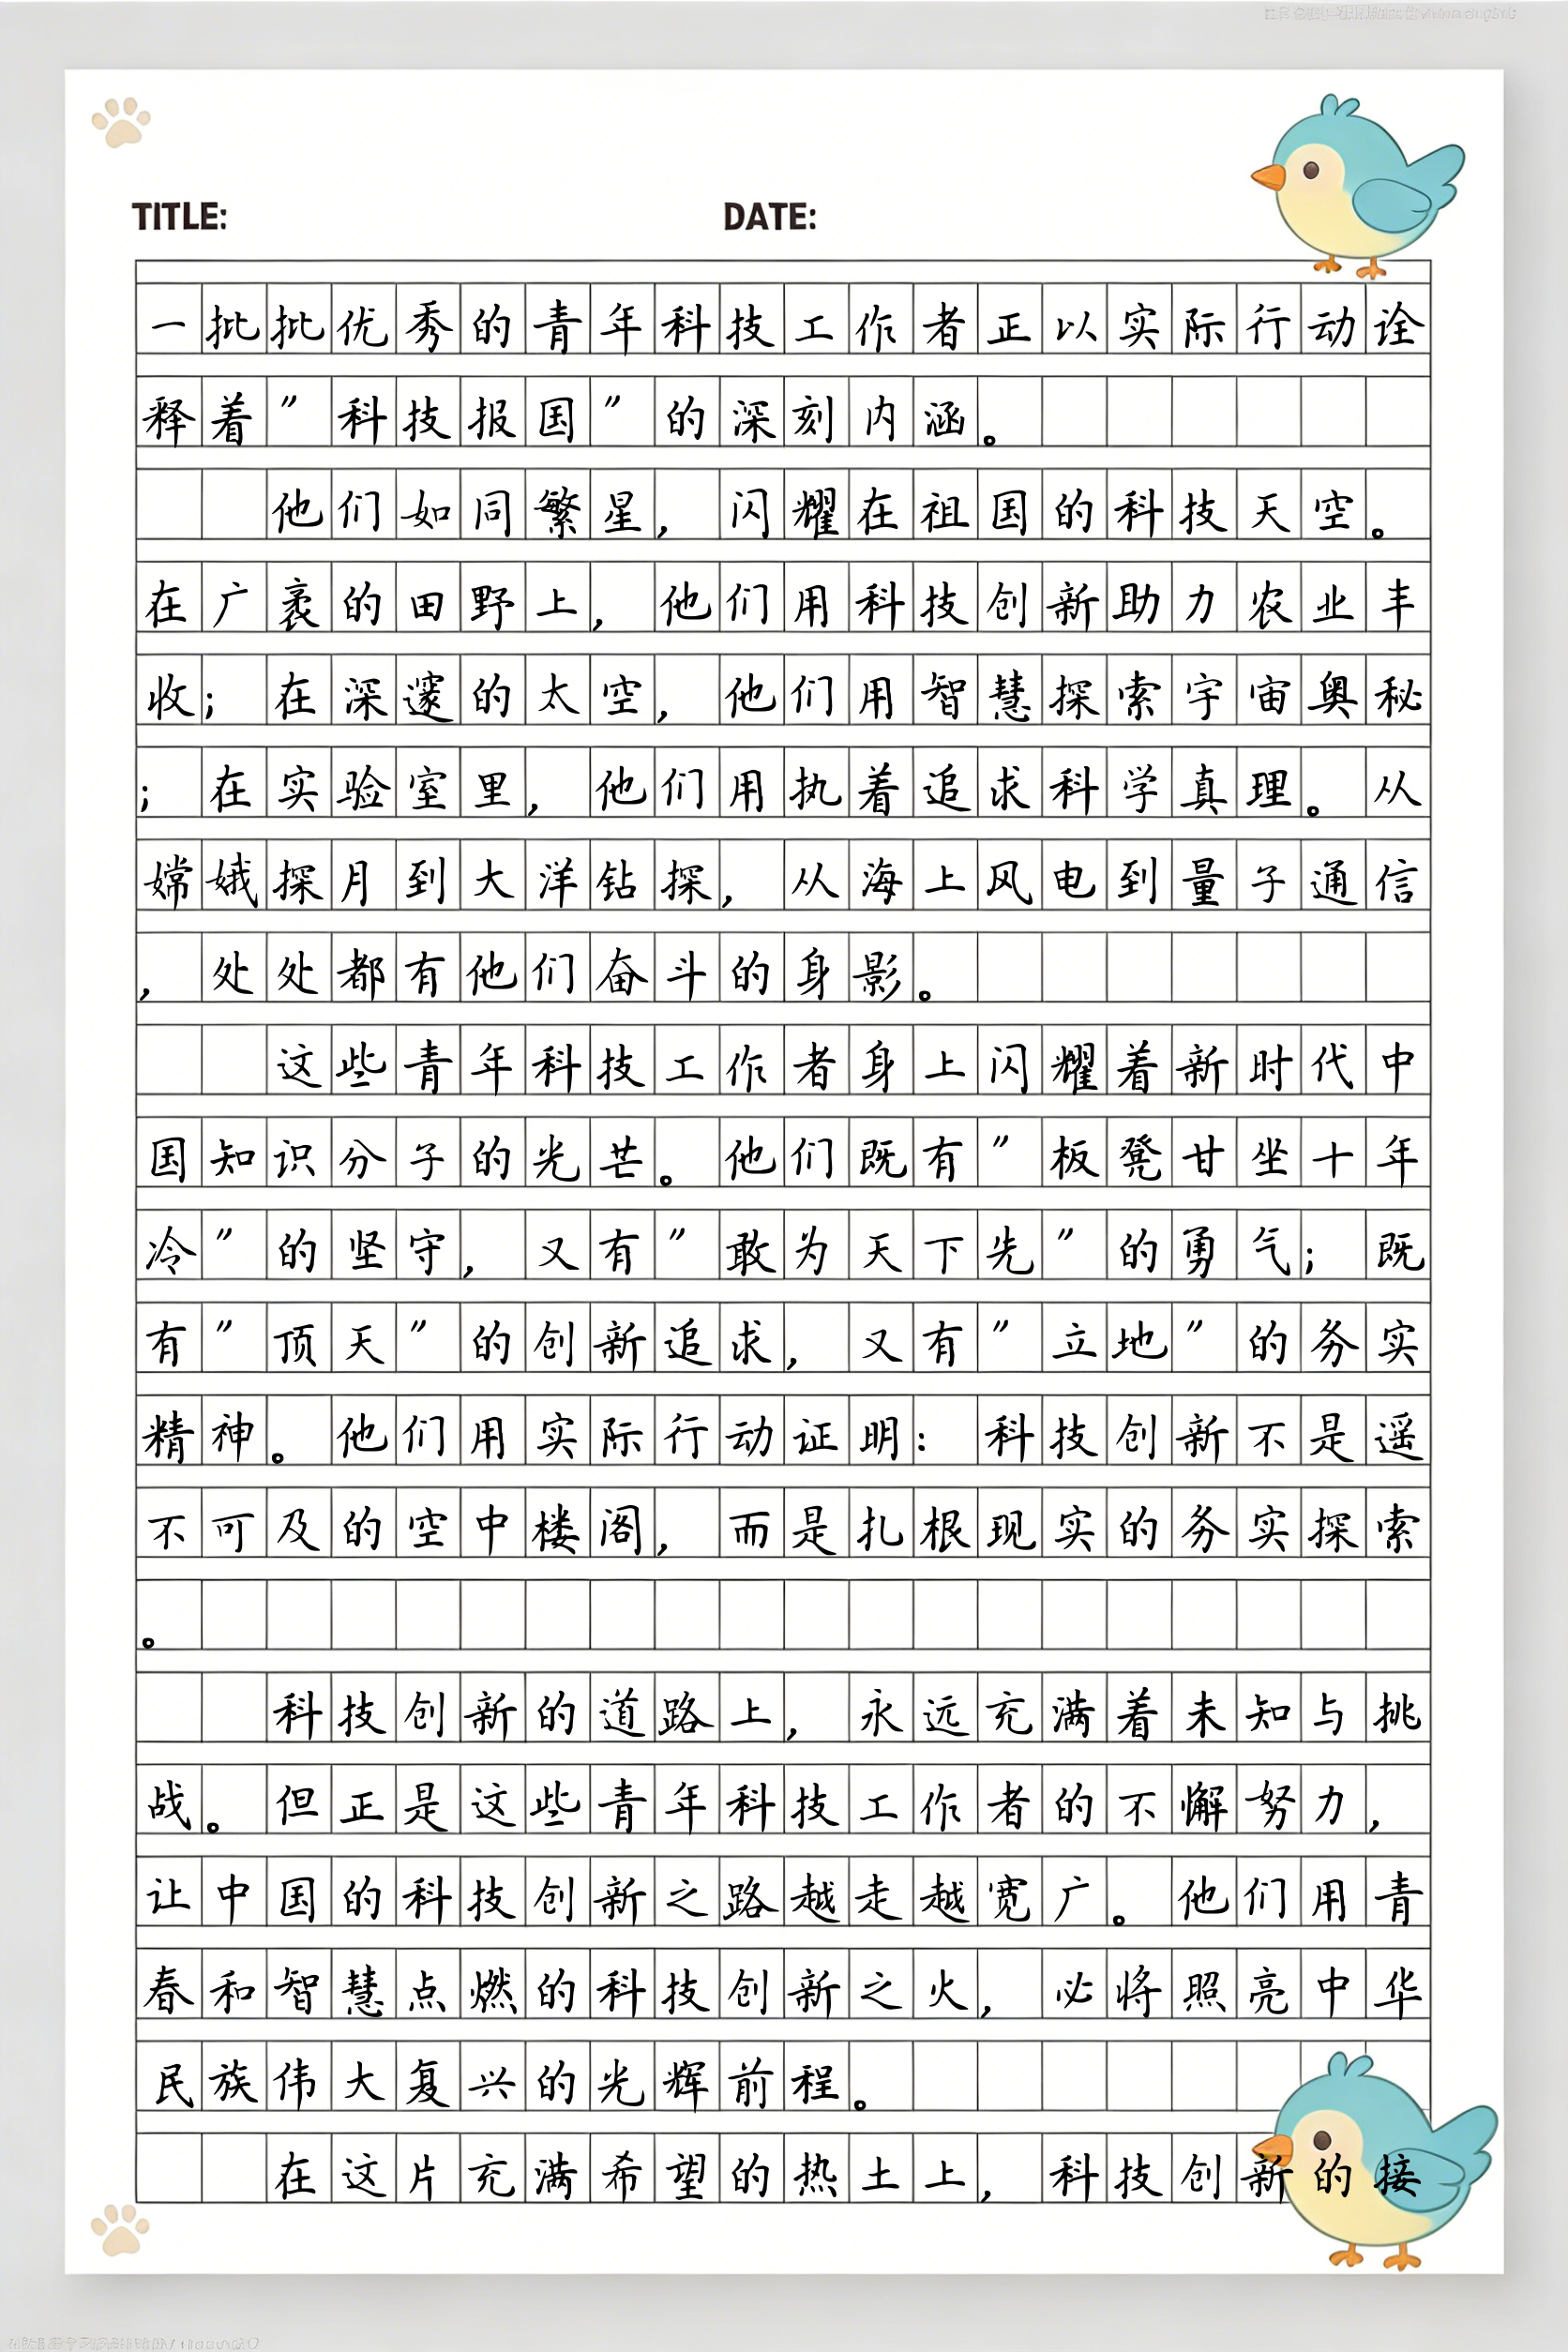 TITLE: DATE:
一批批优秀的青年科技工作者正以实际行动诠
释着"科技报国"的深刻内涵。
他们如同繁星，闪耀在祖国的科技天空。
在广袤的田野上，他们用科技创新助力农业丰
收；在深邃的太空，他们用智慧探索宇宙奥秘
；在实验室里，他们用执着追求科学真理。从
嫦娥探月到大洋钻探，从海上风电到量子通信
，处处都有他们奋斗的身影。
这些青年科技工作者身上闪耀着新时代中
国知识分子的光芒。他们既有"板凳甘坐十年
冷"的坚守，又有"敢为天下先"的勇气；既
有"顶天"的创新追求，又有"立地"的务实
精神。他们用实际行动证明：科技创新不是遥
不可及的空中楼阁，而是扎根现实的务实探索
。
科技创新的道路上，永远充满着未知与挑
战。但正是这些青年科技工作者的不懈努力，
让中国的科技创新之路越走越宽广。他们用青
春和智慧点燃的科技创新之火，必将照亮中华
民族伟大复兴的光辉前程。
在这片充满希望的热土上，科技创新的接